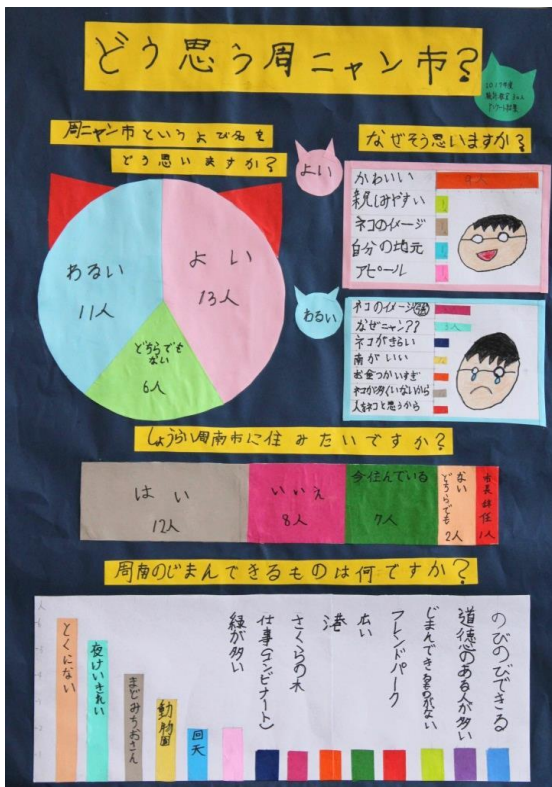 どう思う周ニャン市?
周ニャン市というよび名を
どう思いますか?
よい
なぜそう思いますか?
わるい
11人
よい
13人
どちらでも
ない
6人
かわいい
親しみやすい
ネコのイメージ
自分の地元
アピール
わるい
ネコのイメージ
なぜニャン??
ネコがきらい
南がいい
お金つかいすぎ
ネコが多くいないから
人をネコと思うから
しょうらい周南市に住みたいですか?
はい
12人
いいえ
8人
今住んでいる
7人
どちらでも
ない
2人
市長辞任
1人
周南のじまんできるものは何ですか?
人
とくにない
夜けいきれい
まどみちおさん
動物園
回天
緑が多い
仕事(コンビナート)
さくらの木
港
広い
フレンドパーク
じまんできるものがない
道徳のある人が多い
のびのびできる